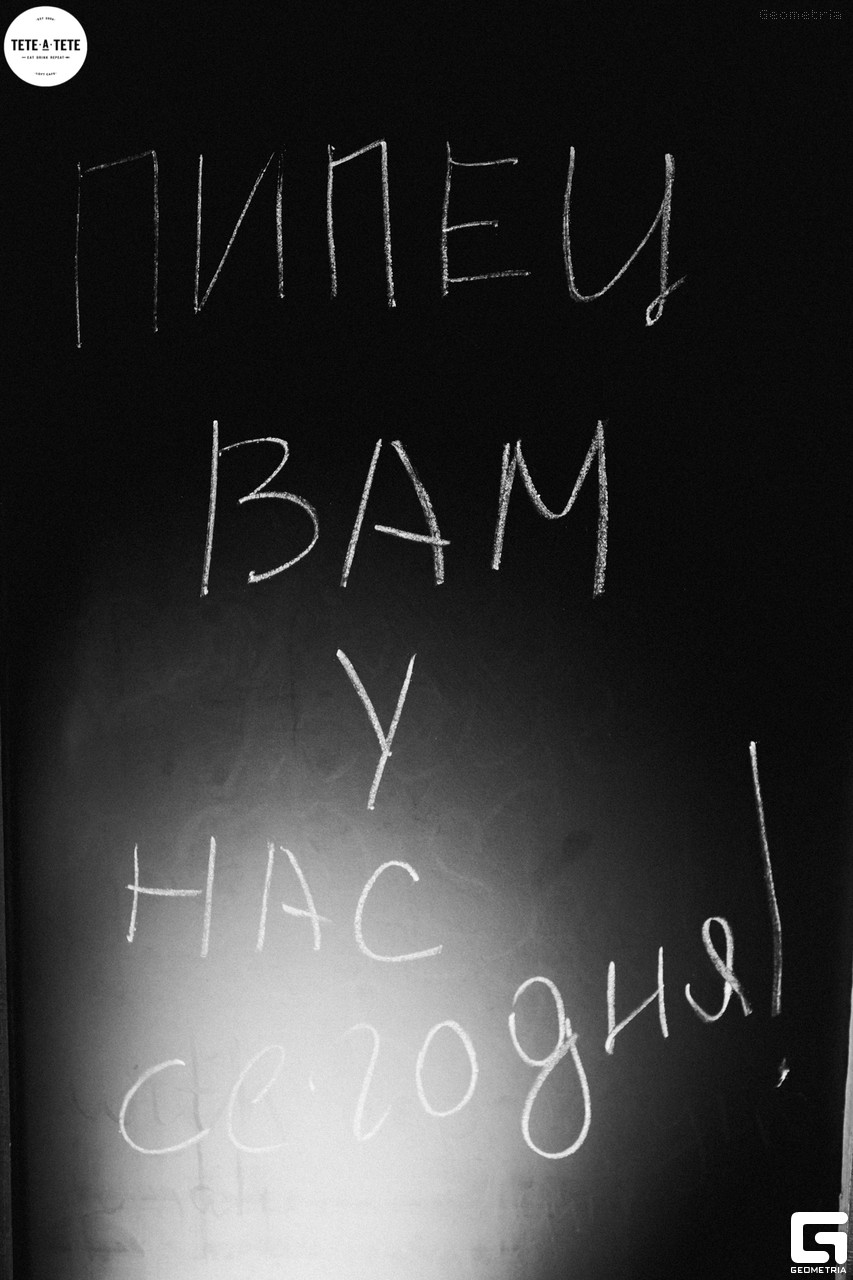 EST 2009
TETE·A·TETE
EAT DRINK REPEAT
Geometria
ПИПЕЦ
ВАМ
У
НАС
сегодня!
GEOMETRIA